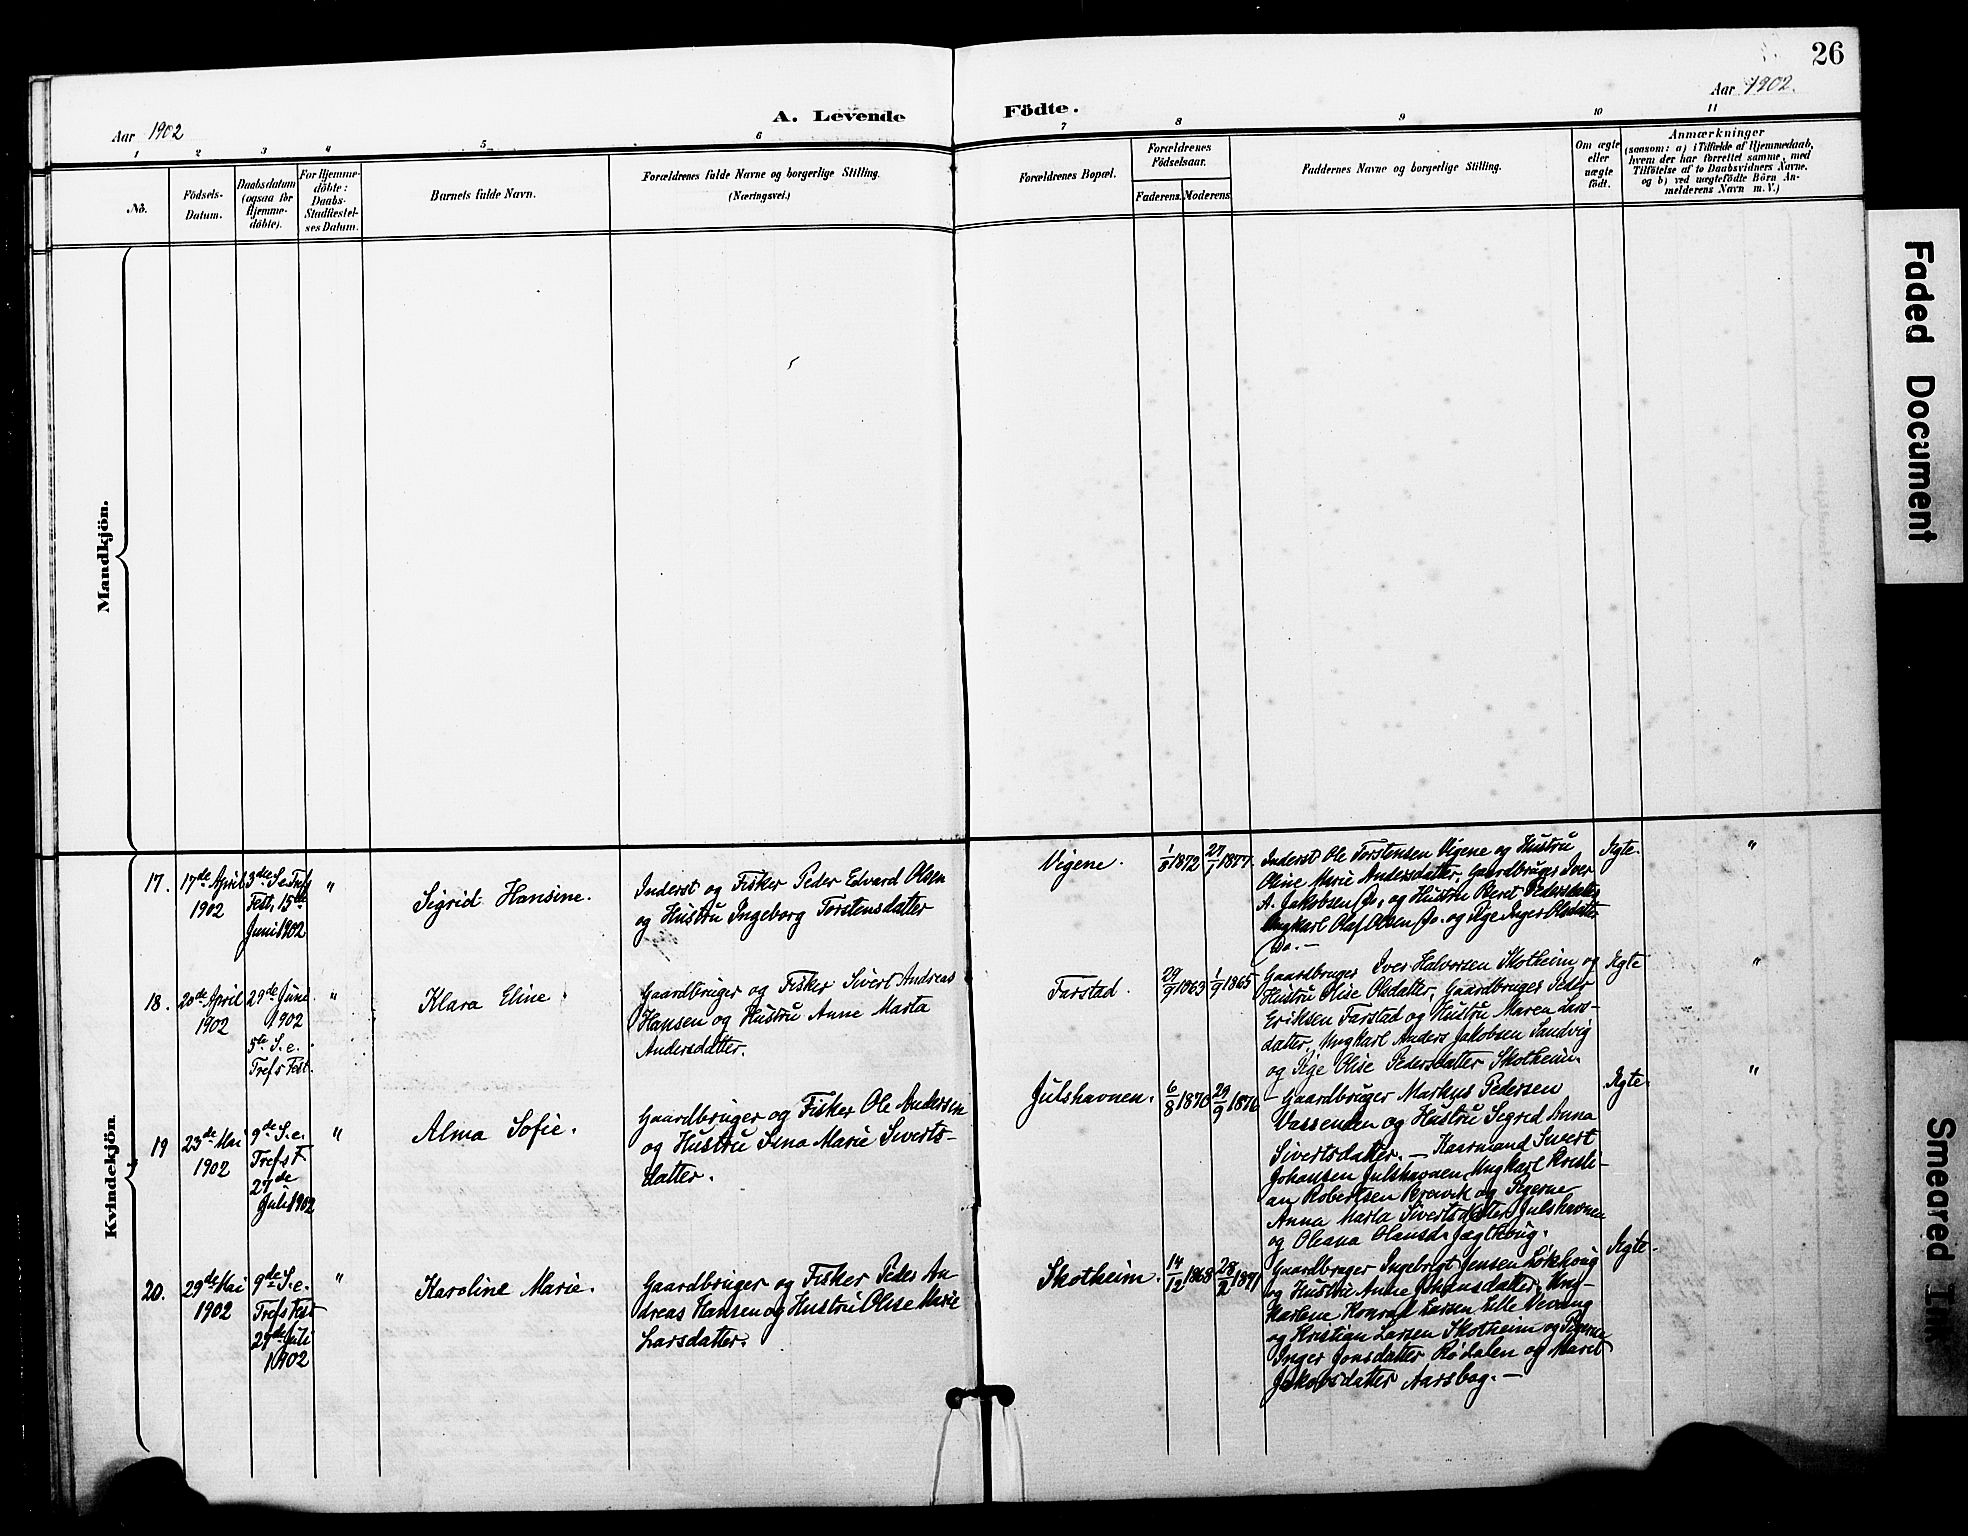 26
Aar 1902
A. Levende Födte.
Aar 1902.
1 2 3 4 5 6 7 8 9 10 11
No.
Födsels-
Datum.
Daabsdatum
(ogsaa for
Hjemme-
döbte).
For Hjemme-
döbte:
Daabs-
Stadfæstel-
ses Datum.
Barnets fulde Navn.
Forældrenes fulde Navne og borgerlige Stilling.
(Næringsvei.)
Forældrenes Bopæl.
Forældrenes
Födselsaar.
Faderens. Moderens.
Faddernes Navne og borgerlige Stilling.
Om ægte
eller
uægte
födt.
Anmærkninger
(saasom: a) i Tilfælde af Hjemmedaab,
hvem der har forrettet samme, med
Tilföielse af to Daabsvidners Navne,
og b) ved uægtefödte Börn An-
melderens Navn m. V.)
Mandkjön.
Kvindekjön
17.
17de April
1902
3die S. e. Trefs
Fest, 15de
Juni 1902
"
Sigrid Hansine.
Inderst og Fisker Peder Edvard Olsen
og Hustru Ingeborg Torstensdatter
Vigene.
1/8 1872
27/1 1877.
Inderst Ole Torstensen Vigene og Hustru
Oline Marie Andersdatter, Gaardbruger Iver
A. Jakobsen Do, og Hustru Beret Pedersdatter
Ungkarl Olaf Olsen Do. og Pige Inger Olsdatter
Do. —
Ægte.
"
18.
20de April
1902
29de June
1902
5te S. e.
Trefs Fest.
"
Klara Eline.
Gaardbruger og Fisker Sivert Andreas
Hansen og Hustru Anne Marta
Andersdatter.
Farstad.
29/9 1863
1/9 1865
Gaardbruger Iver Halvorsen Skotheim og
Hustru Olise Olsdatter, Gaardbruger Peder
Eriksen Farstad og Hustru Maren Lars-
datter, Ungkarl Anders Jakobsen Sandvig
og Pige Olise Pedersdatter Skotheim.
Ægte
"
19
23de Mai
1902
9de S. e.
Trefs F
27de
Juli 1902
"
Alma Sofie.
Gaardbruger og Fisker Ole Andersen
og Hustru Sina Marie Siverts-
datter.
Julshavnen.
6/8 1870
29/9 1876
— Gaardbruger Markus Pedersen
Vassenden og Hustru Sigrid Anna
Sivertsdatter. — Kaarmand Sivert
Johansen Julshavnen, Ungkarl Kristi-
an Robertsen og Pigerne
Anna Marta Sivertsdatter Julshavnen
og Oleana Olausd.
Ægte.
"
20.
29de Mai
1902
9de S. e.
Trefs Fest
27de Juli
1902
"
Karoline Marie.
Gaardbruger og Fisker Peder An-
dreas Hansen og Hustru Olise Marie
Larsdatter.
Skotheim.
14/12 1868
28/2 1871
Gaardbruger Ingebrigt Jensen Løkhoug
og Hustru Anne Johansdatter, Ung-
karlene Konrad Larsen Lille Vevang
og Kristian Larsen Skotheim og Pigerne
Inger Jonsdatter Rødalen og Maret
Jakobsdatter Aarsbog. —
Ægte.
Faded Document
Smeared Ink